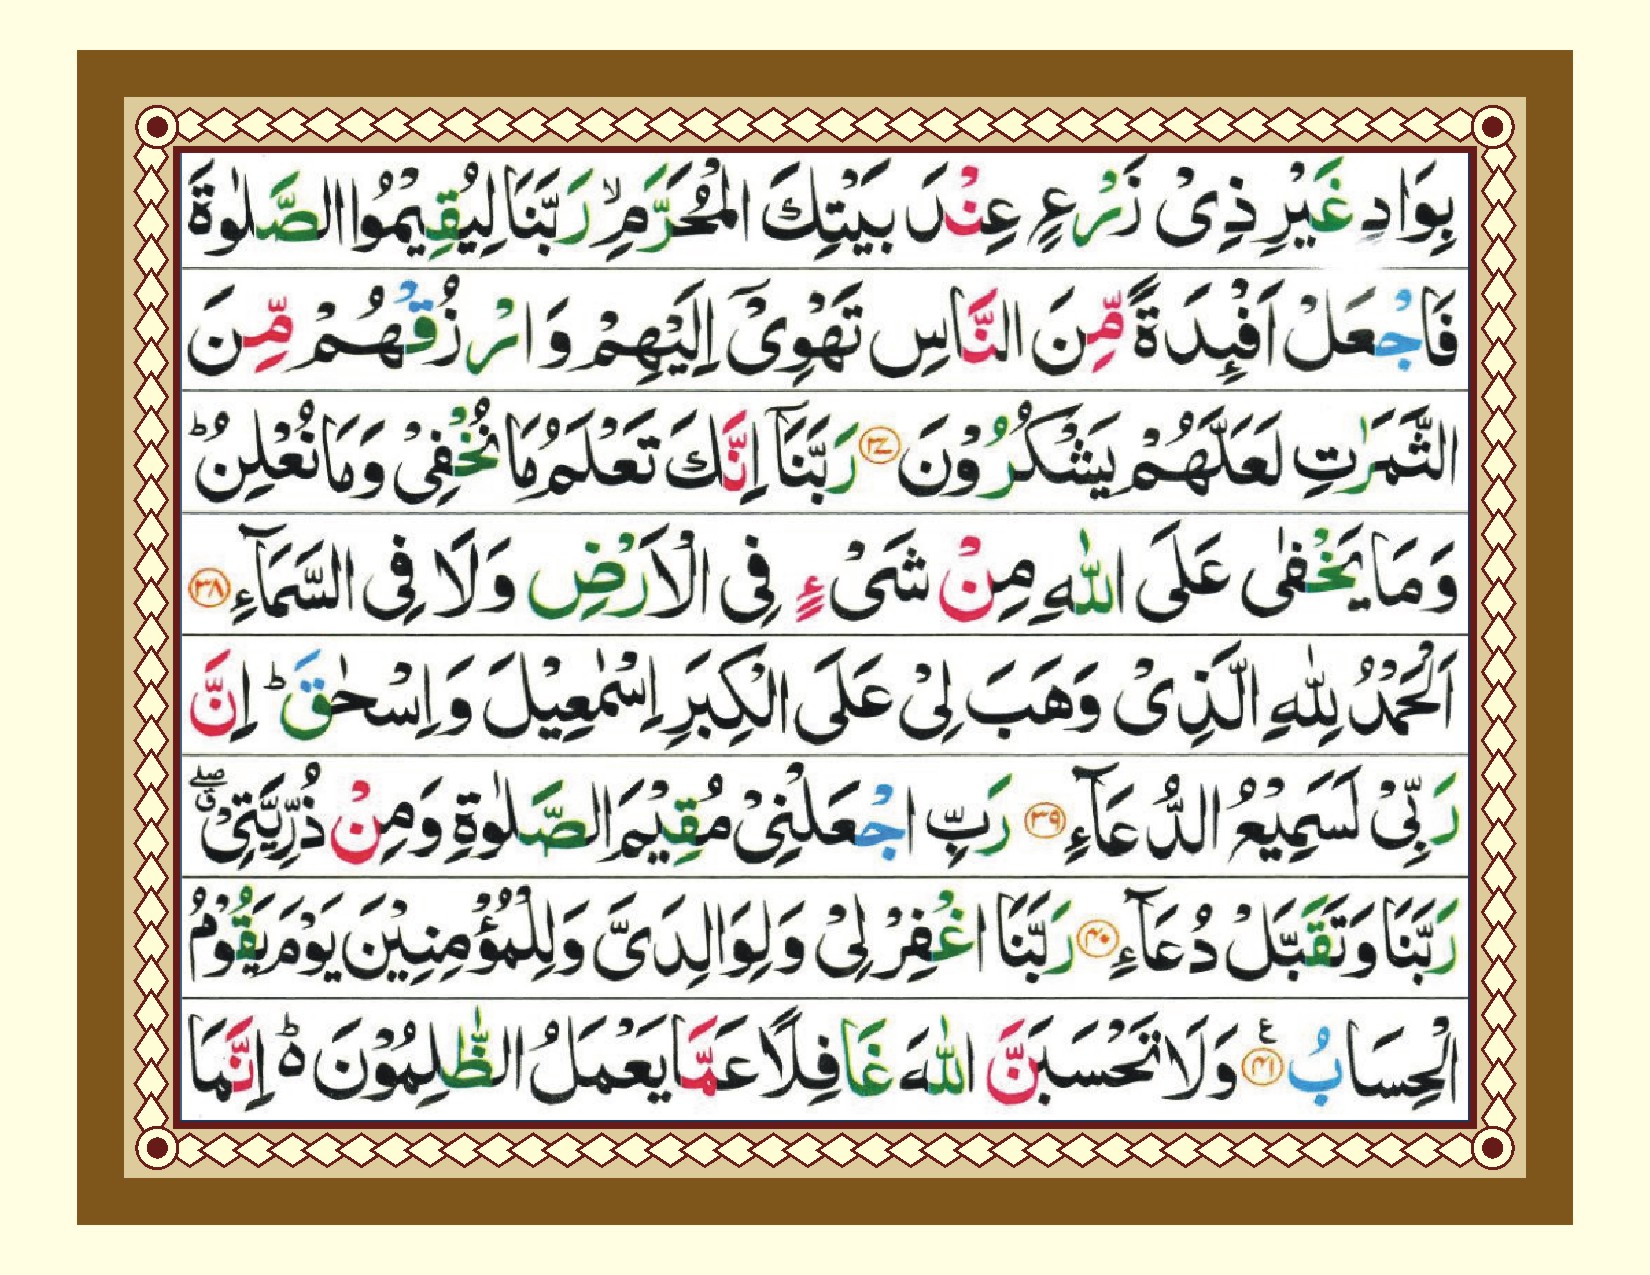 بِوَادٍ غَيْرِ ذِىْ زَرْعٍ عِنْدَ بَيْتِكَ الْمُحَرَّمِ ۙ رَبَّنَا لِيُقِيْمُوا الصَّلٰوةَ
فَاجْعَلْ اَفْـِٕدَةً مِّنَ النَّاسِ تَهْوِىْٓ اِلَيْهِمْ وَارْزُقْهُمْ مِّنَ
الثَّمَرٰتِ لَعَلَّهُمْ يَشْكُرُوْنَ ﴿۳۷﴾ رَبَّنَاۤ اِنَّكَ تَعْلَمُ مَا نُخْفِىْ وَمَا نُعْلِنُ ؕ
وَمَا يَخْفٰى عَلَى اللّٰهِ مِنْ شَىْءٍ فِى الْاَرْضِ وَلَا فِى السَّمَآءِ ﴿۳۸﴾
اَلْحَمْدُ لِلّٰهِ الَّذِىْ وَهَبَ لِىْ عَلَى الْكِبَرِ اِسْمٰعِيْلَ وَاِسْحٰقَ ؕ اِنَّ
رَبِّىْ لَسَمِيْعُ الدُّعَآءِ ﴿۳۹﴾ رَبِّ اجْعَلْنِىْ مُقِيْمَ الصَّلٰوةِ وَمِنْ ذُرِّيَّتِىْ ۖق
رَبَّنَا وَتَقَبَّلْ دُعَآءِ ﴿۴۰﴾ رَبَّنَا اغْفِرْ لِىْ وَلِوَالِدَىَّ وَلِلْمُؤْمِنِيْنَ يَوْمَ يَقُوْمُ
الْحِسَابُ ﴿۴۱﴾ ع وَلَا تَحْسَبَنَّ اللّٰهَ غَافِلًا عَمَّا يَعْمَلُ الظّٰلِمُوْنَ ؕ۬ اِنَّمَا